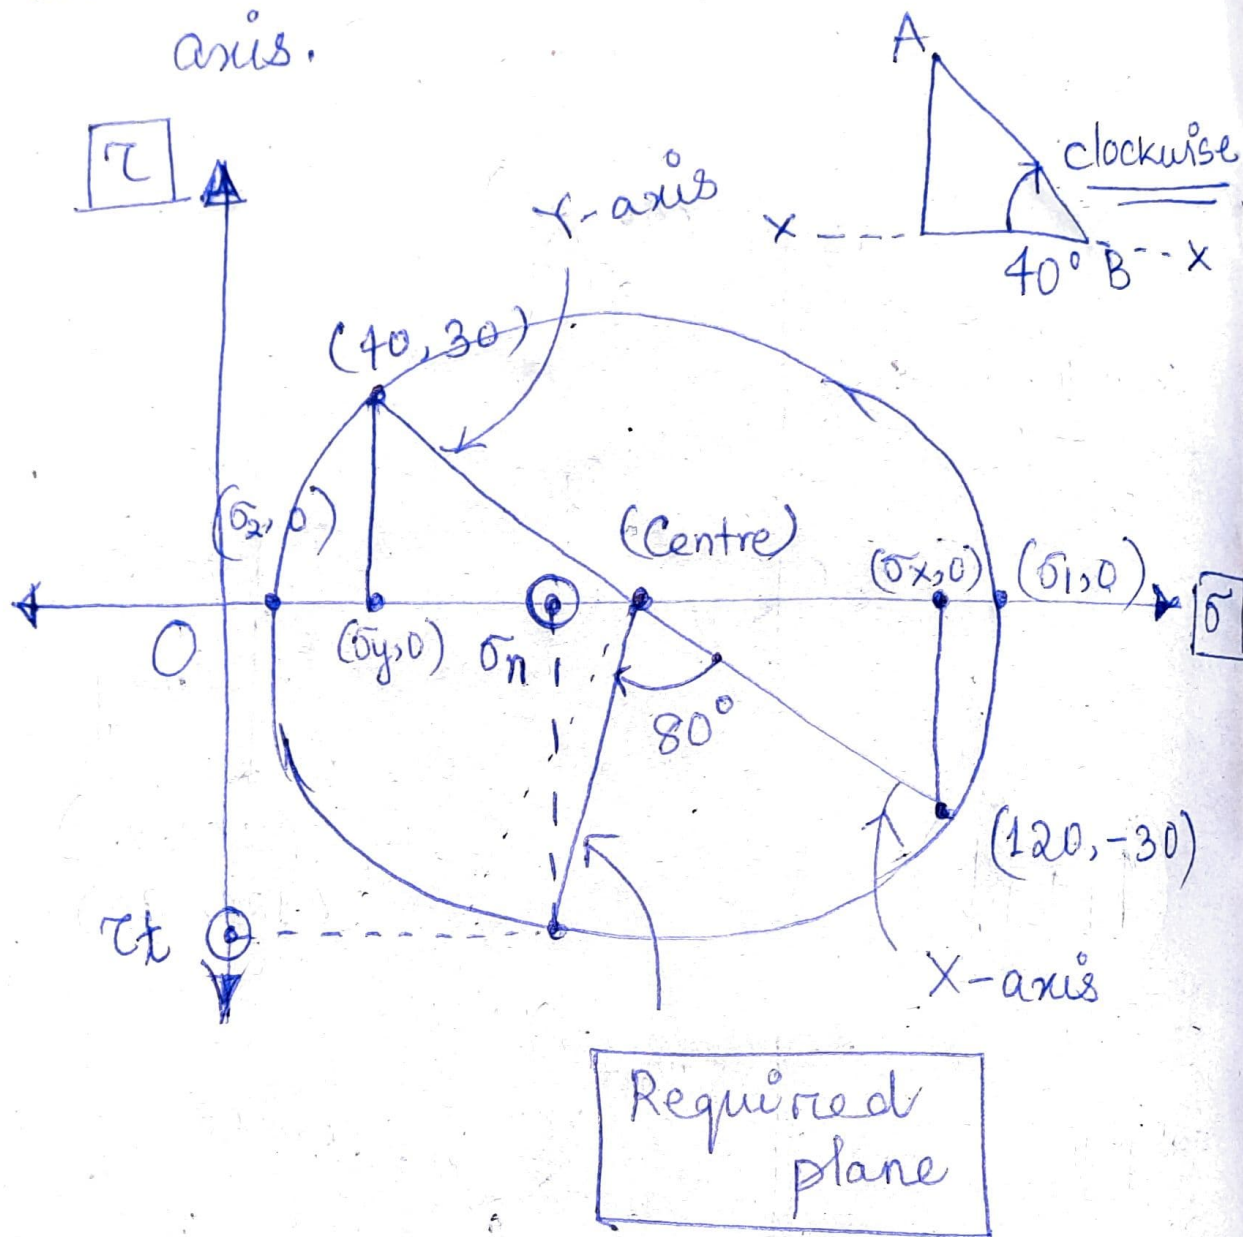 axis.
A
τ
clockwise
Y-axis
X
40° B
X
(40, 30)
(σ2, 0)
(Centre)
(σx, 0)
(σ1, 0)
σ
O
(σy, 0)
σn
80°
(120, -30)
τt
X-axis
Required
plane